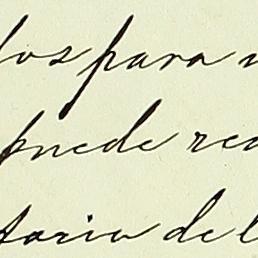 los para
puede rea
tario del